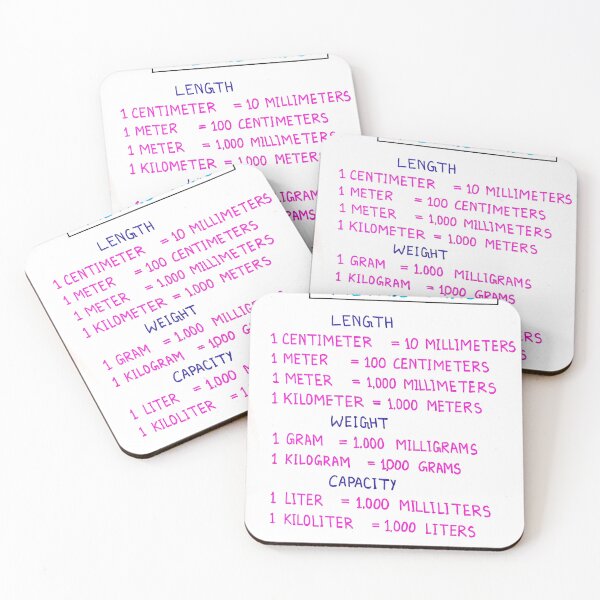 LENGTH
1 CENTIMETER = 10 MILLIMETERS
1 METER = 100 CENTIMETERS
1 METER = 1,000 MILLIMETERS
1 KILOMETER = 1,000 METERS
LENGTH
1 CENTIMETER = 10 MILLIMETERS
1 METER = 100 CENTIMETERS
1 METER = 1,000 MILLIMETERS
1 KILOMETER = 1,000 METERS
WEIGHT
1 GRAM = 1,000 MILLIGRAMS
1 KILOGRAM = 1,000 GRAMS
LENGTH
1 CENTIMETER = 10 MILLIMETERS
1 METER = 100 CENTIMETERS
1 METER = 1,000 MILLIMETERS
1 KILOMETER = 1,000 METERS
WEIGHT
1 GRAM = 1,000 MILLIGRAMS
1 KILOGRAM = 1,000 GRAMS
CAPACITY
1 LITER = 1,000
1 KILOLITER =
LENGTH
1 CENTIMETER = 10 MILLIMETERS
1 METER = 100 CENTIMETERS
1 METER = 1,000 MILLIMETERS
1 KILOMETER = 1,000 METERS
WEIGHT
1 GRAM = 1,000 MILLIGRAMS
1 KILOGRAM = 1,000 GRAMS
CAPACITY
1 LITER = 1,000 MILLILITERS
1 KILOLITER = 1,000 LITERS